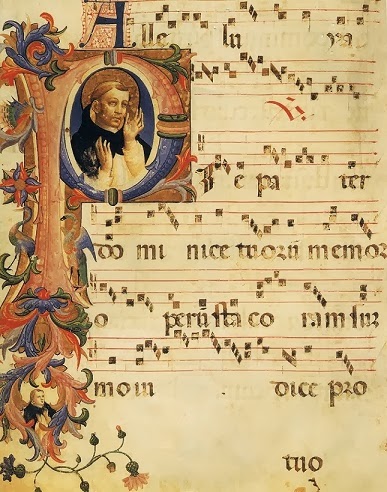 A lle lu ya
℣
P I e pa ter
do mi nice tuorū memor
o perū sta co ram sum
mo iu dice pro
tuo